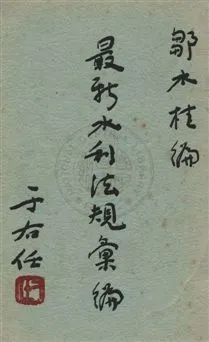 鄒水桂編
最新水利法規彙編
于右任